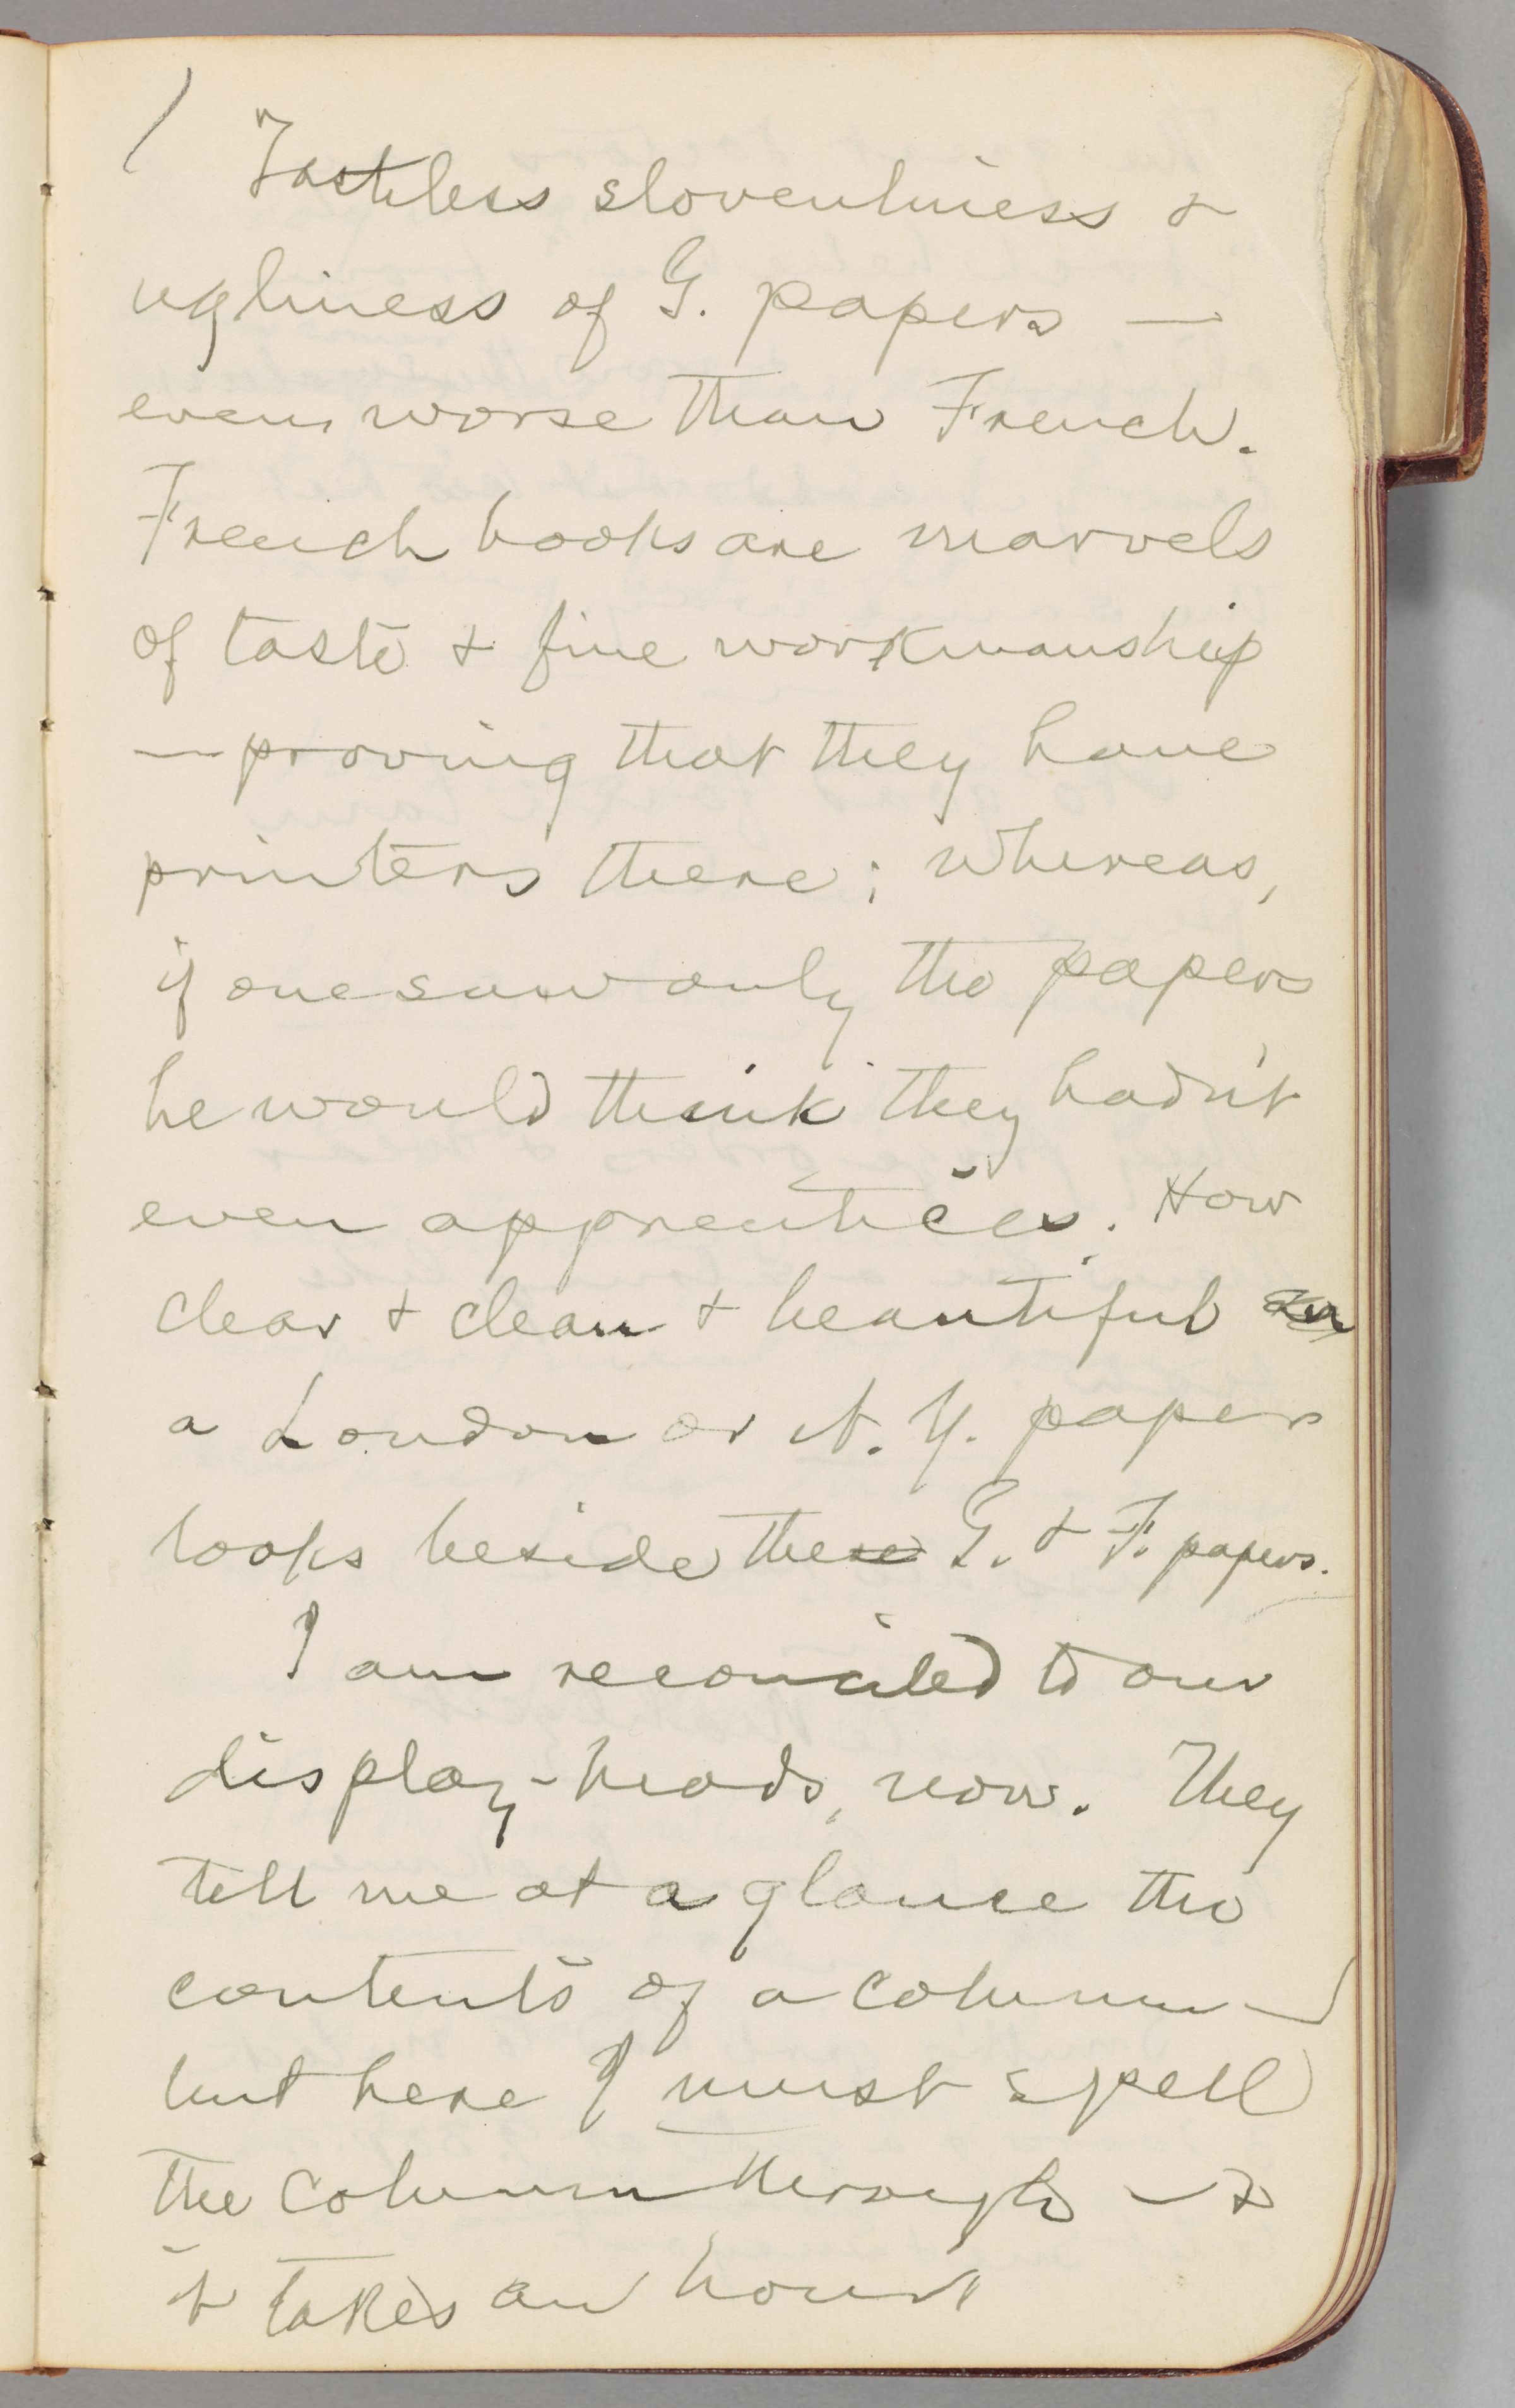 Tasteless slovenliness &
ugliness of G. papers —
even worse than French.
French books are marvels
of taste & fine workmanship
— proving that they have
printers there; whereas,
if one saw only the papers
he would think they hadn't
even apprentices. How
clear & clean & beautiful
a London or N. Y. paper
looks beside these G. & F. papers.
I am reconciled to our
display-heads, now. They
tell me at a glance the
contents of a column —
but here I must spell
the column through — &
it takes an hour.